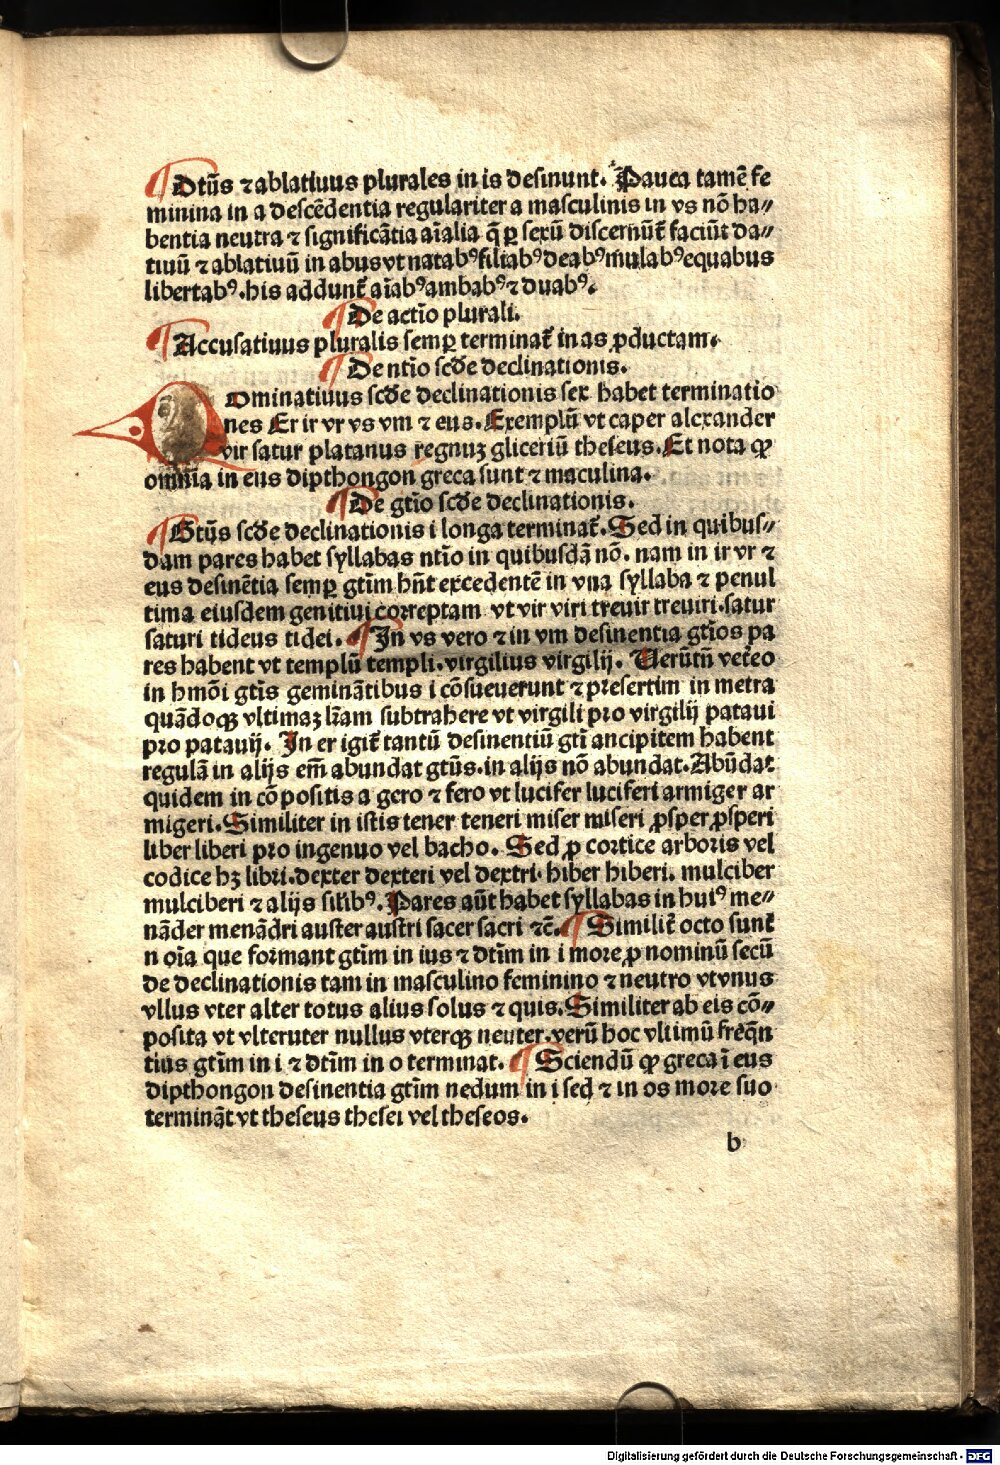 ¶ Dtiũs ⁊ ablatiuus plurales in is desinunt. Pauca tamẽ fe
minina in a descẽdentia regulariter a masculinis in vs nõ ha⸗
bentia neutra ⁊ significãtia aĩalia q̃ ꝑ sexũ discernũt̃ faciũt da⸗
tiuũ ⁊ ablatiuũ in abus vt natabꝰ filiabꝰ deabꝰ mulabꝰ equabus
libertabꝰ. his addunt̃ aĩabꝰ ambabꝰ ⁊ duabꝰ.
¶ De actĩo plurali.
¶ Accusatiuus pluralis semꝑ terminat̃ in as ꝓductam.
¶ De ntĩo scđe declinationis.
Ominatiuus scđe declinationis sex habet terminatio
nes Er ir vr vs vm ⁊ eus. Exemplũ vt caper alexander
vir satur platanus regnuꝫ gliceriũ theseus. Et nota ꝙ
omnia in eus dipthongon greca sunt ⁊ maculina.
¶ De gtĩo scđe declinationis.
¶ Gtũs scđe declinationis i longa terminat̃. Sed in quibus⸗
dam pares habet syllabas ntĩo in quibusdã nõ. nam in ir vr ⁊
eus desinẽtia semꝑ gtĩm hñt excedentẽ in vna syllaba ⁊ penul
tima eiusdem genitiui correptam vt vir viri treuir treuiri. satur
saturi tideus tidei. ¶ In vs vero ⁊ in vm desinentia gtĩos pa
res habent vt templũ templi. virgilius virgilij. Uerũtñ vet̃eo
in hmõi gtĩs geminãtibus i cõsueuerunt ⁊ presertim in metra
quãdoqꝫ vltimaꝫ lr̃am subtrahere vt virgili pro virgilij pataui
pro patauij. In er igit̃ tantũ desinentiũ gtĩ ancipitem habent
regulã in alijs em̃ abundat gtũs. in alijs nõ abundat. Abũdat
quidem in cõpositis a gero ⁊ fero vt lucifer luciferi armiger ar
migeri. Similiter in istis tener teneri miser miseri ꝓsper ꝓsperi
liber liberi pro ingenuo vel bacho. Sed ꝓ cortice arboris vel
codice hꝫ libri. dexter dexteri vel dextri. hiber hiberi. mulciber
mulciberi ⁊ alijs sil̃ibꝰ. Pares aũt habet syllabas in huiꝰ me⸗
nãder menãdri auster austri sacer sacri ⁊c̃. ¶ Similit̃ octo sunt
n oĩa que formant gtĩm in ius ⁊ dtĩm in i more ꝓ nominũ secũ
de declinationis tam in masculino feminino ⁊ neutro vt vnus
vllus vter alter totus alius solus ⁊ quis. Similiter ab eis cõ⸗
posita vt vlteruter nullus vterqꝫ neuter. verũ hoc vltimũ freq̃n
tius gtĩm in i ⁊ dtĩm in o terminat. ¶ Sciendũ ꝙ greca ĩ eus
dipthongon desinentia gtĩm nedum in i sed ⁊ in os more suo
terminãt vt theseus thesei vel theseos.
b
Digitalisierung gefördert durch die Deutsche Forschungsgemeinschaft - DFG